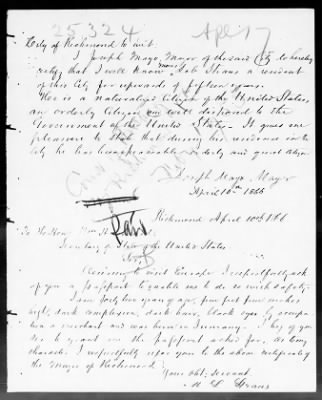 25,324 Apl 17
City of Richmond to wit
I Joseph Mayo, Mayor of the said City do hereby
certify that I well know Strans a resident
of this City for upwards of fifteen years.
He is a naturalized Citizen of the United States,
an orderly Citizen well disposed to the
Government of the United States. It gives me
pleasure to state that during his residence in the
city he has been an orderly and quiet Citizen
Joseph Mayo Mayor
April 10th 1866
Richmond April 10th 1866
To The Hon. Wm H.
Secretary of State of the United States
Sir,
Desiring to visit Europe I respectfully ask
of you a passport to enable me to do so with safety.
I am forty two years of age, five feet five inches
high, dark complexion, dark hair, black eyes by occupa
tion a merchant and was born in Germany. I beg of you
to grant me the passport asked for. As to my
character I respectfully refer you to the above certificate of
the Mayor of Richmond.
Your obt. servant
Strans